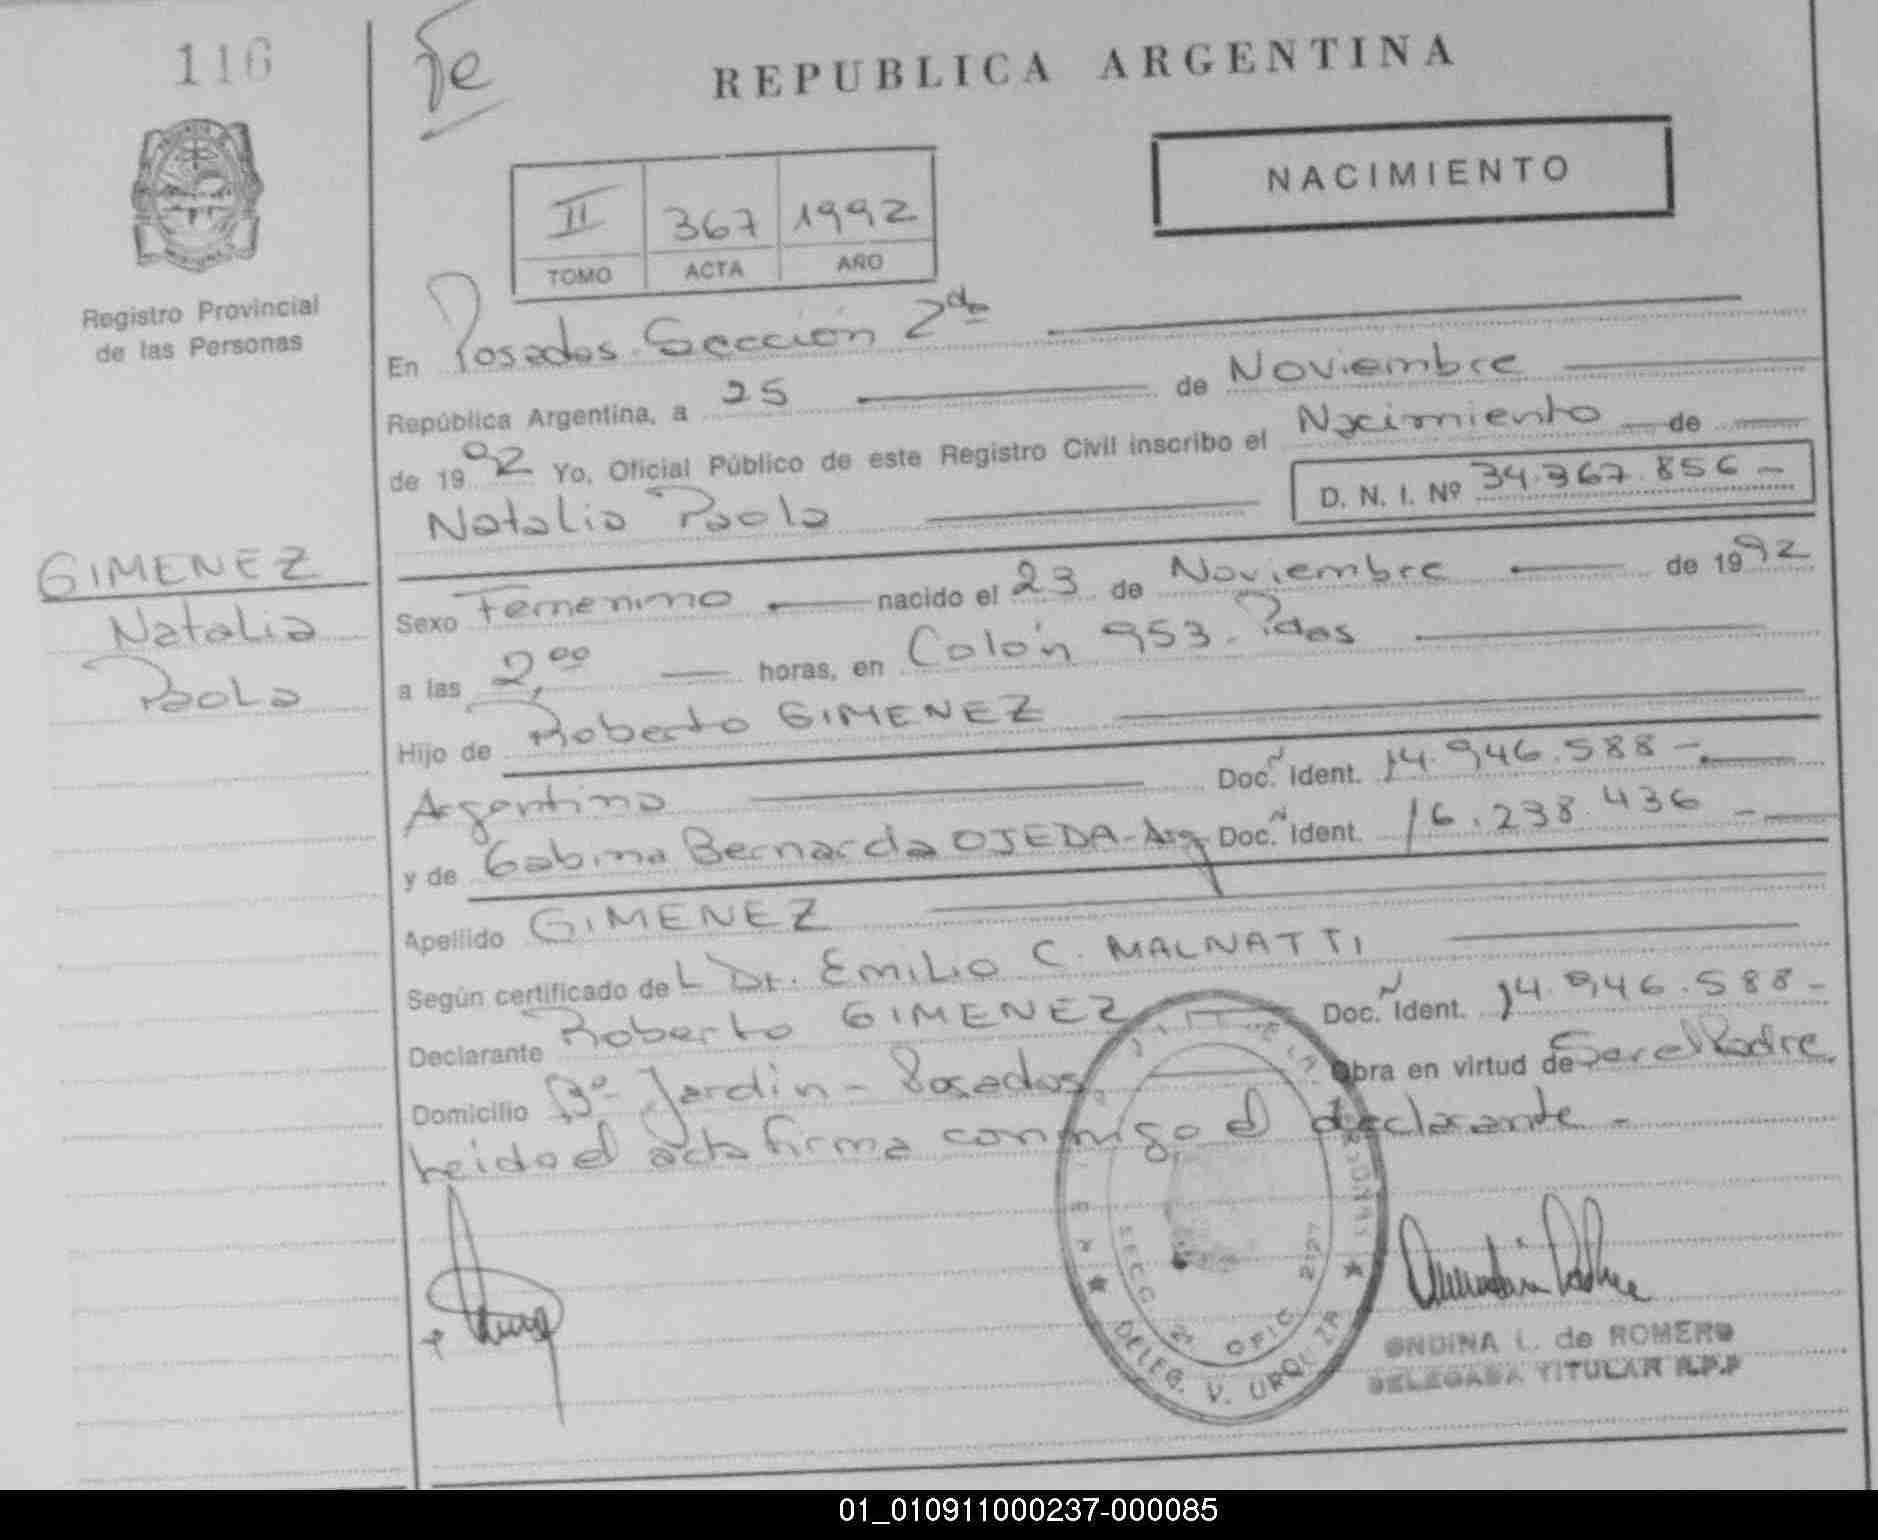 116
Fe
REPUBLICA ARGENTINA
NACIMIENTO
II 367 1992
TOMO ACTA AÑO
Registro Provincial
de las Personas
En Posadas. Sección 2da
República Argentina, a 25 de Noviembre
de 1992 Yo, Oficial Público de este Registro Civil inscribo el Nacimiento de
Natalia Paola D. N. I. Nº 34.367.856 -
GIMENEZ
Natalia
Paola
Sexo Femenino nacido el 23 de Noviembre de 1992
a las 2,00 horas, en Colón 953. Pdas
Hijo de Roberto GIMENEZ
Argentino Doc. Ident. 14.946.588 -
y de Gabina Bernarda OJEDA - Arg Doc. Ident. 16.238.436 -
Apellido GIMENEZ
Según certificado del Dr. Emilio C. MALNATTI
Declarante Roberto GIMENEZ Doc. Ident. 14.946.588 -
Domicilio Bº Jardín - Posadas, Obra en virtud de Ser el Padre.
Leida el acta firma conmigo el declarante -
SECC. 2ª OFIC. 2127
DELEG. V. URQUIZA
ONDINA L. de ROMERO
DELEGADA TITULAR R.P.P
01_010911000237-000085